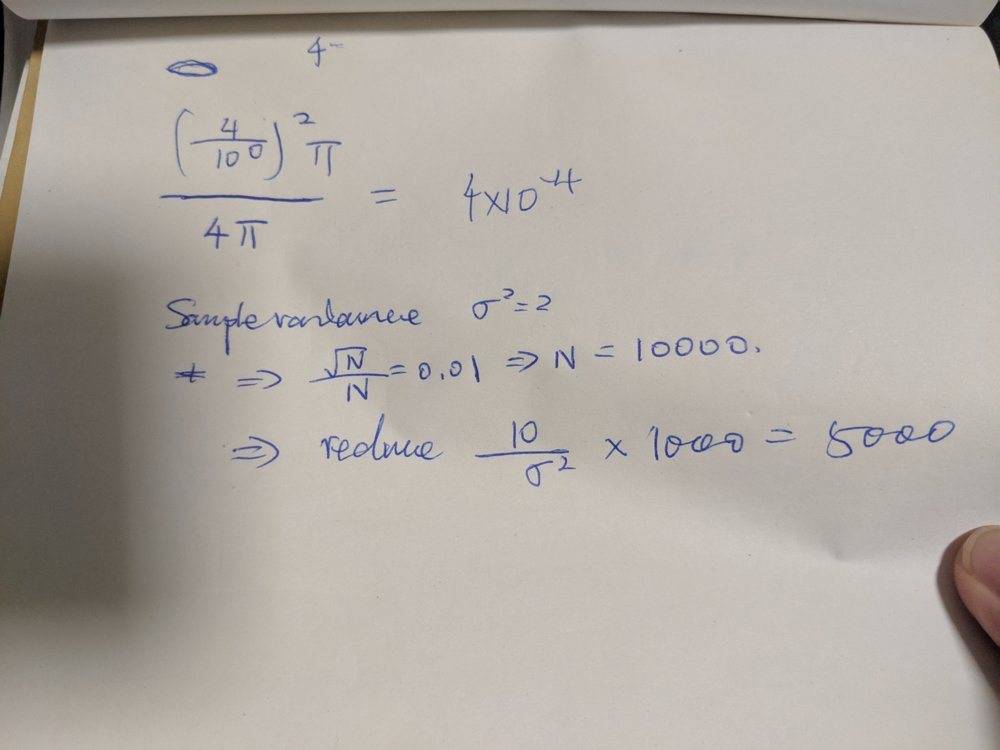 4-
(4/100)² π
/ 4π = 4×10⁻⁴
Sample variance σ²=2
⇒ √N/N = 0.01 ⇒ N = 10000.
⇒ reduce 10/σ² × 1000 = 5000